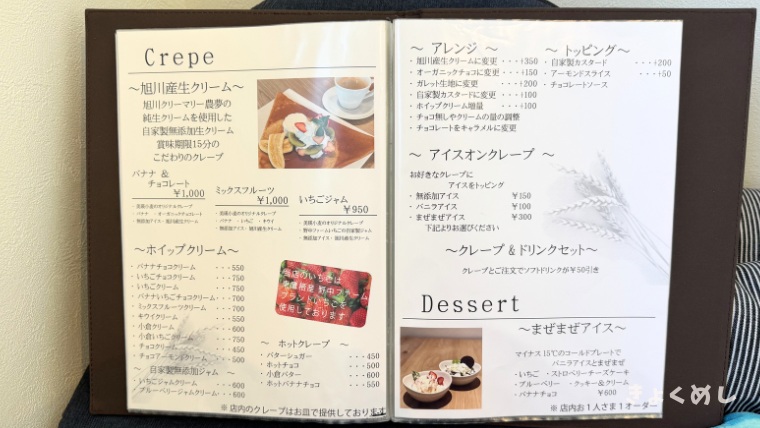 Crepe
～旭川産生クリーム～
旭川クリーマリー農夢の
純生クリームを使用した
自家製無添加生クリーム
賞味期限15分の
こだわりのクレープ
バナナ ＆
チョコレート
￥1,000
・バナナ ・オーガニックチョコレート
・無添加アイス・旭川産生クリーム
ミックスフルーツ
￥1,000
・バナナ ・いちご ・キウイ
・無添加アイス・旭川産生クリーム
いちごジャム
￥950
・無添加アイス・旭川産生クリーム
～ホイップクリーム～
・バナナチョコクリーム ・・・550
・いちごチョコクリーム ・・・750
・いちごクリーム ・・・750
・バナナいちごチョコクリーム ・・・700
・ミックスフルーツクリーム ・・・700
・キウイクリーム ・・・600
・小倉クリーム ・・・600
・小倉いちごクリーム ・・・750
・チョコクリーム ・・・450
・チョコアーモンドクリーム ・・・500
～ 自家製無添加ジャム ～
・いちごジャムクリーム ・・・600
・ブルーベリージャムクリーム ・・・600
当店のいちごは
野中ファーム
ブランドいちごを
使用しております
～ ホットクレープ ～
・バターシュガー ・・・450
・ホットチョコ ・・・500
・小倉バター ・・・600
・ホットバナナチョコ ・・・550
※ 店内のクレープはお皿で提供しております
～ アレンジ ～
・旭川産生クリームに変更 ・・・+350
・オーガニックチョコに変更 ・・・+150
・ガレット生地に変更 ・・・+200
・自家製カスタードに変更 ・・・+100
・ホイップクリーム増量 ・・・+100
・チョコ無しやクリームの量の調整
・チョコレートをキャラメルに変更
～ トッピング ～
・自家製カスタード ・・・+200
・アーモンドスライス ・・・+50
・チョコレートソース
～ アイスオンクレープ ～
お好きなクレープに
アイスをトッピング
・無添加アイス ￥150
・バニラアイス ￥100
・まぜまぜアイス ￥300
下記よりお選びください
～クレープ＆ドリンクセット～
クレープとご注文でソフトドリンクが￥50引き
Dessert
～まぜまぜアイス～
マイナス15℃のコールドプレートで
バニラアイスとまぜまぜ
・いちご ・ストロベリーチーズケーキ
・ブルーベリー ・クッキー＆クリーム
・バナナチョコ ￥600
※ 店内お１人さま１オーダー
きょくめし